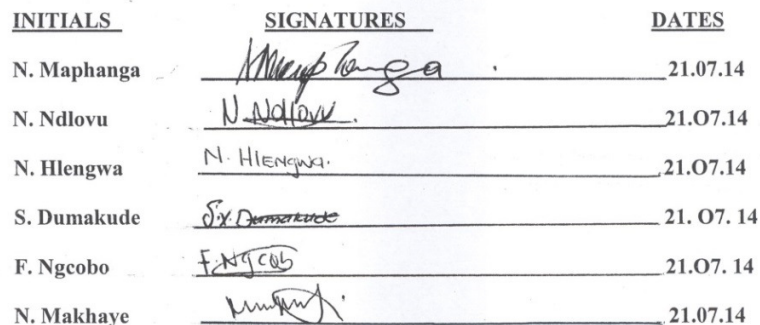 INITIALS SIGNATURES DATES
N. Maphanga 21.07.14
N. Ndlovu N. Ndlovu. 21.O7.14
N. Hlengwa N. Hlengwa. 21.O7.14
S. Dumakude S.X. Dumakude 21. O7. 14
F. Ngcobo F. Ngcob 21.O7. 14
N. Makhaye 21.07.14